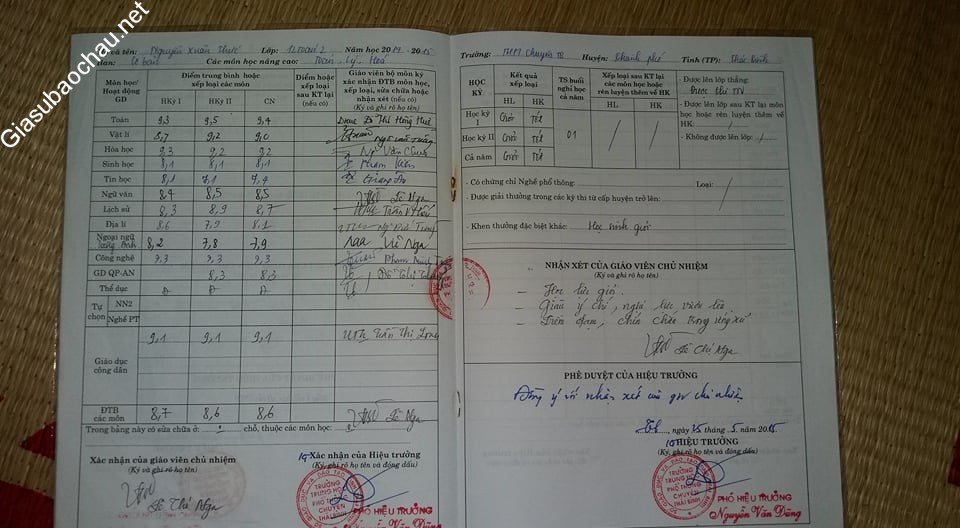 Giasubaochau.net
Họ và tên: Nguyễn Xuân Thức Lớp: 12 Toán 2 Năm học 2014 - 2015
Ban: Cơ bản Các môn học nâng cao: Toán - Lý - Hoá
Môn học/ Hoạt động GD
Điểm trung bình hoặc xếp loại các môn
HKỳ I HKỳ II CN
Điểm hoặc xếp loại sau KT lại (nếu có)
Giáo viên bộ môn ký xác nhận ĐTB môn học, xếp loại, sửa chữa hoặc nhận xét (nếu có)
(Ký và ghi rõ họ tên)
Toán 9,3 9,5 9,4
Vật lí 8,7 9,2 9,0
Hóa học 9,3 9,2 9,2
Sinh học 8,1 8,1 8,1
Tin học 8,1 7,1 7,4
Ngữ văn 8,4 8,5 8,5 Lê Nga
Lịch sử 8,3 8,9 8,7
Địa lí 8,6 7,9 8,1
Ngoại ngữ 8,2 7,8 7,9 Nga
Công nghệ 9,3 9,3 9,3
GD QP-AN 8,3 8,3
Thể dục Đ Đ Đ
Tự chọn
NN2
Nghề PT
9,1 9,1 9,1 Trần Thị Long
Giáo dục công dân
ĐTB các môn 8,7 8,6 8,6 Lê Nga
Trong bảng này có sửa chữa ở: chỗ, thuộc các môn học:
Xác nhận của giáo viên chủ nhiệm
(Ký và ghi rõ họ tên)
Lê Thị Nga
Xác nhận của Hiệu trưởng
(Ký, ghi rõ họ tên và đóng dấu)
TRƯỜNG
TRUNG HỌC
PHỔ THÔNG
CHUYÊN
THÁI BÌNH
PHÓ HIỆU TRƯỞNG
Nguyễn Văn Dũng
Trường: THPT Chuyên TB Huyện: Thành phố Tỉnh (TP): Thái Bình
HỌC KỲ
Kết quả xếp loại
HL HK
TS buổi nghỉ học cả năm
Xếp loại sau KT lại các môn học hoặc rèn luyện thêm về HK
HL HK
Học kỳ I Giỏi Tốt
Học kỳ II Giỏi Tốt
Cả năm Giỏi Tốt
01
- Được lên lớp thẳng:
Được thi TN
- Được lên lớp sau KT lại môn học hoặc rèn luyện thêm về HK:
- Không được lên lớp:
- Có chứng chỉ Nghề phổ thông: Loại:
- Được giải thưởng trong các kỳ thi từ cấp huyện trở lên:
- Khen thưởng đặc biệt khác: Học sinh giỏi
NHẬN XÉT CỦA GIÁO VIÊN CHỦ NHIỆM
(Ký và ghi rõ họ tên)
- Học lực giỏi.
- Giàu ý chí, nghị lực vươn lên
- Điềm đạm, chín chắn trong ứng xử
Lê Thị Nga
PHÊ DUYỆT CỦA HIỆU TRƯỞNG
Đồng ý với nhận xét của gv chủ nhiệm
TB, ngày 25 tháng 5 năm 2015
HIỆU TRƯỞNG
(Ký, ghi rõ họ tên và đóng dấu)
TRƯỜNG
TRUNG HỌC
PHỔ THÔNG
CHUYÊN
THÁI BÌNH
PHÓ HIỆU TRƯỞNG
Nguyễn Văn Dũng